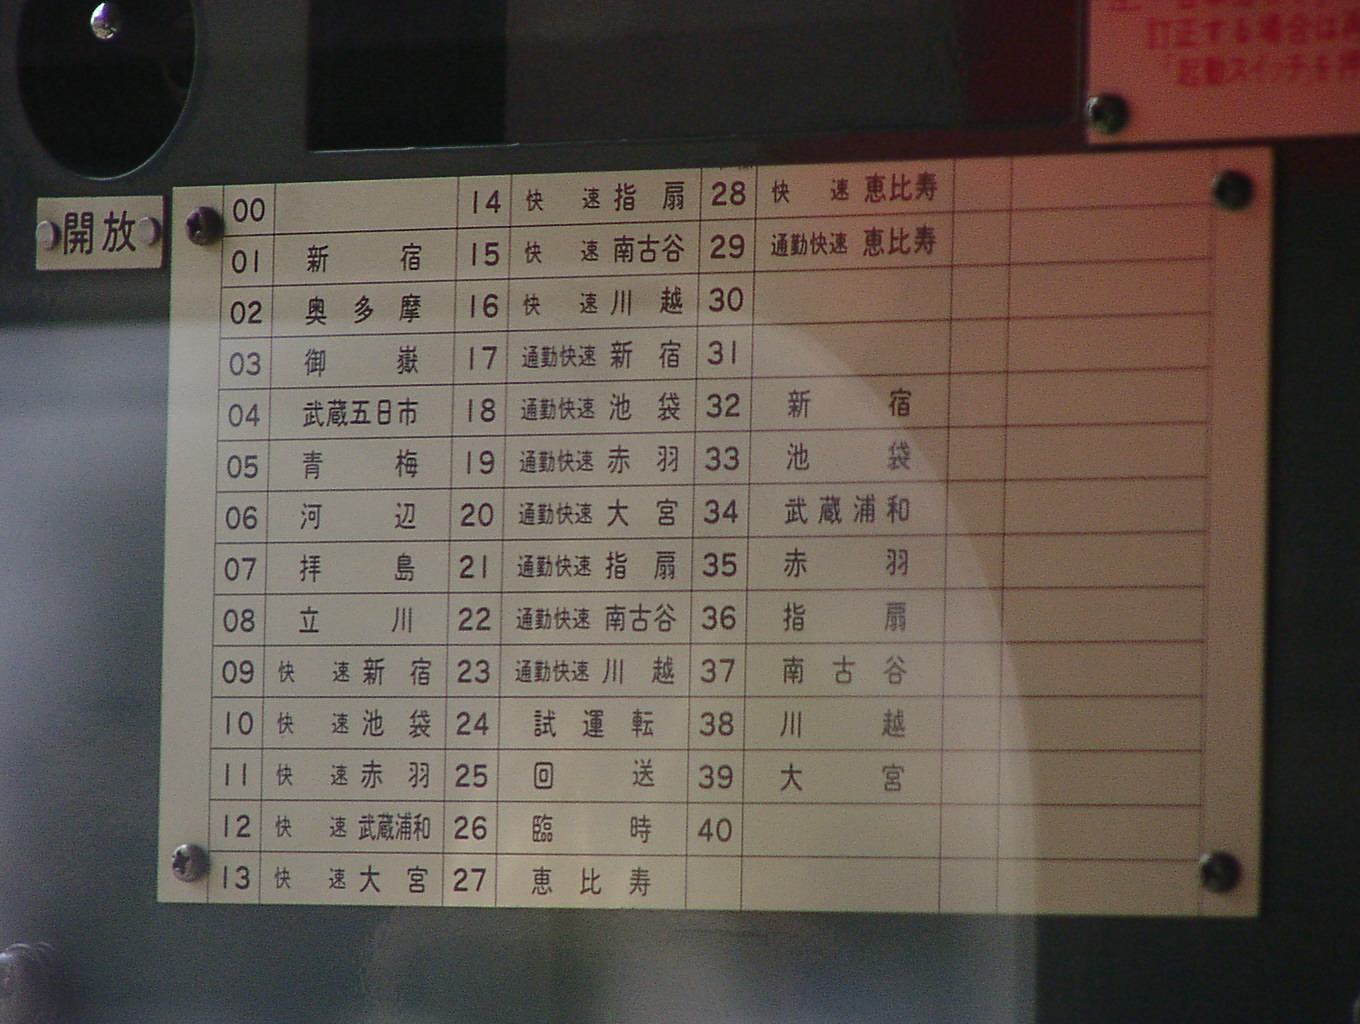 訂正する場合は
「起動スイッチ」を押
開放
00 14 快速 指扇 28 快速 恵比寿
01 新宿 15 快速 南古谷 29 通勤快速 恵比寿
02 奥多摩 16 快速 川越 30
03 御嶽 17 通勤快速 新宿 31
04 武蔵五日市 18 通勤快速 池袋 32 新宿
05 青梅 19 通勤快速 赤羽 33 池袋
06 河辺 20 通勤快速 大宮 34 武蔵浦和
07 拝島 21 通勤快速 指扇 35 赤羽
08 立川 22 通勤快速 南古谷 36 指扇
09 快速 新宿 23 通勤快速 川越 37 南古谷
10 快速 池袋 24 試運転 38 川越
11 快速 赤羽 25 回送 39 大宮
12 快速 武蔵浦和 26 臨時 40
13 快速 大宮 27 恵比寿